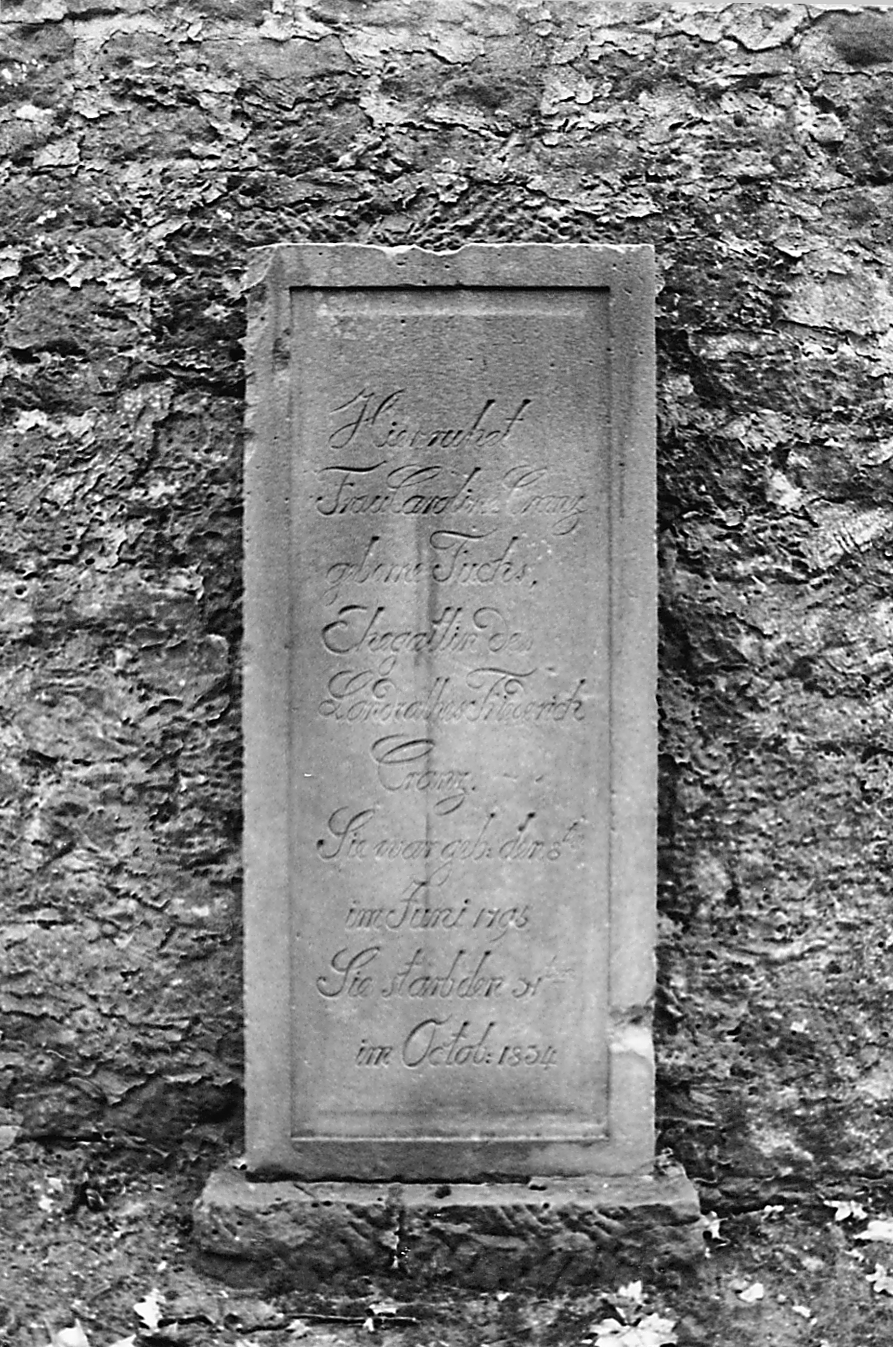 Hier ruhet
Frau Caroline Cranz
geborne Fuchs,
Ehegattin des
Landrathes Friderich
Cranz.
Sie war geb: den 8t
im Juni 1795
Sie starb den 31ten
im Octob: 1834